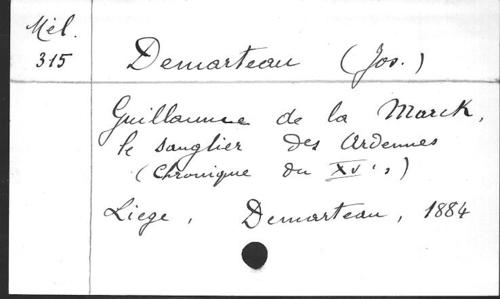 Mél.
315
Demarteau (Jos.)
Guillaume de la Marck,
le sanglier des Ardennes
(Chronique du XVe s)
Liege, Demarteau, 1884